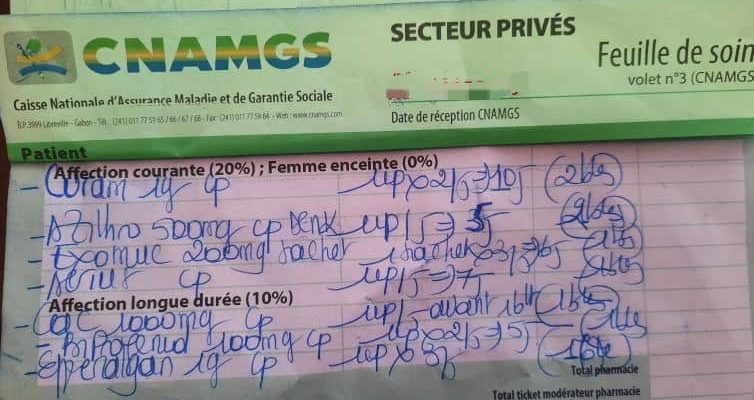 CNAMGS
SECTEUR PRIVÉS
Feuille de soin
volet n°3 (CNAMGS
Caisse Nationale d'Assurance Maladie et de Garantie Sociale
B.P 3999 Libreville - Gabon - Tél. (241) 011 77 59 65 / 66 / 67 / 68 - Fax : (241) 011 77 59 64 - Web : www.cnamgs.com
Date de réception CNAMGS
Patient
Affection courante (20%) ; Femme enceinte (0%)
- Curam 1g cp 1cp x 2/j => 10j (2bts)
- Azithro 500mg cp Denk 1cp/j => 5j (2bts)
- Exomuc 200mg sachet 1 sachet x 3/j
- Aerius cp 1cp/j => 7j
Affection longue durée (10%)
- CaC 1000mg cp 1cp/j avant 16h (1bte)
- BiProfenid 100mg cp 1cp x 2/j => 5j
- Efferalgan 1g cp 1cp x 3/j (1bte)
Total pharmacie
Total ticket modérateur pharmacie